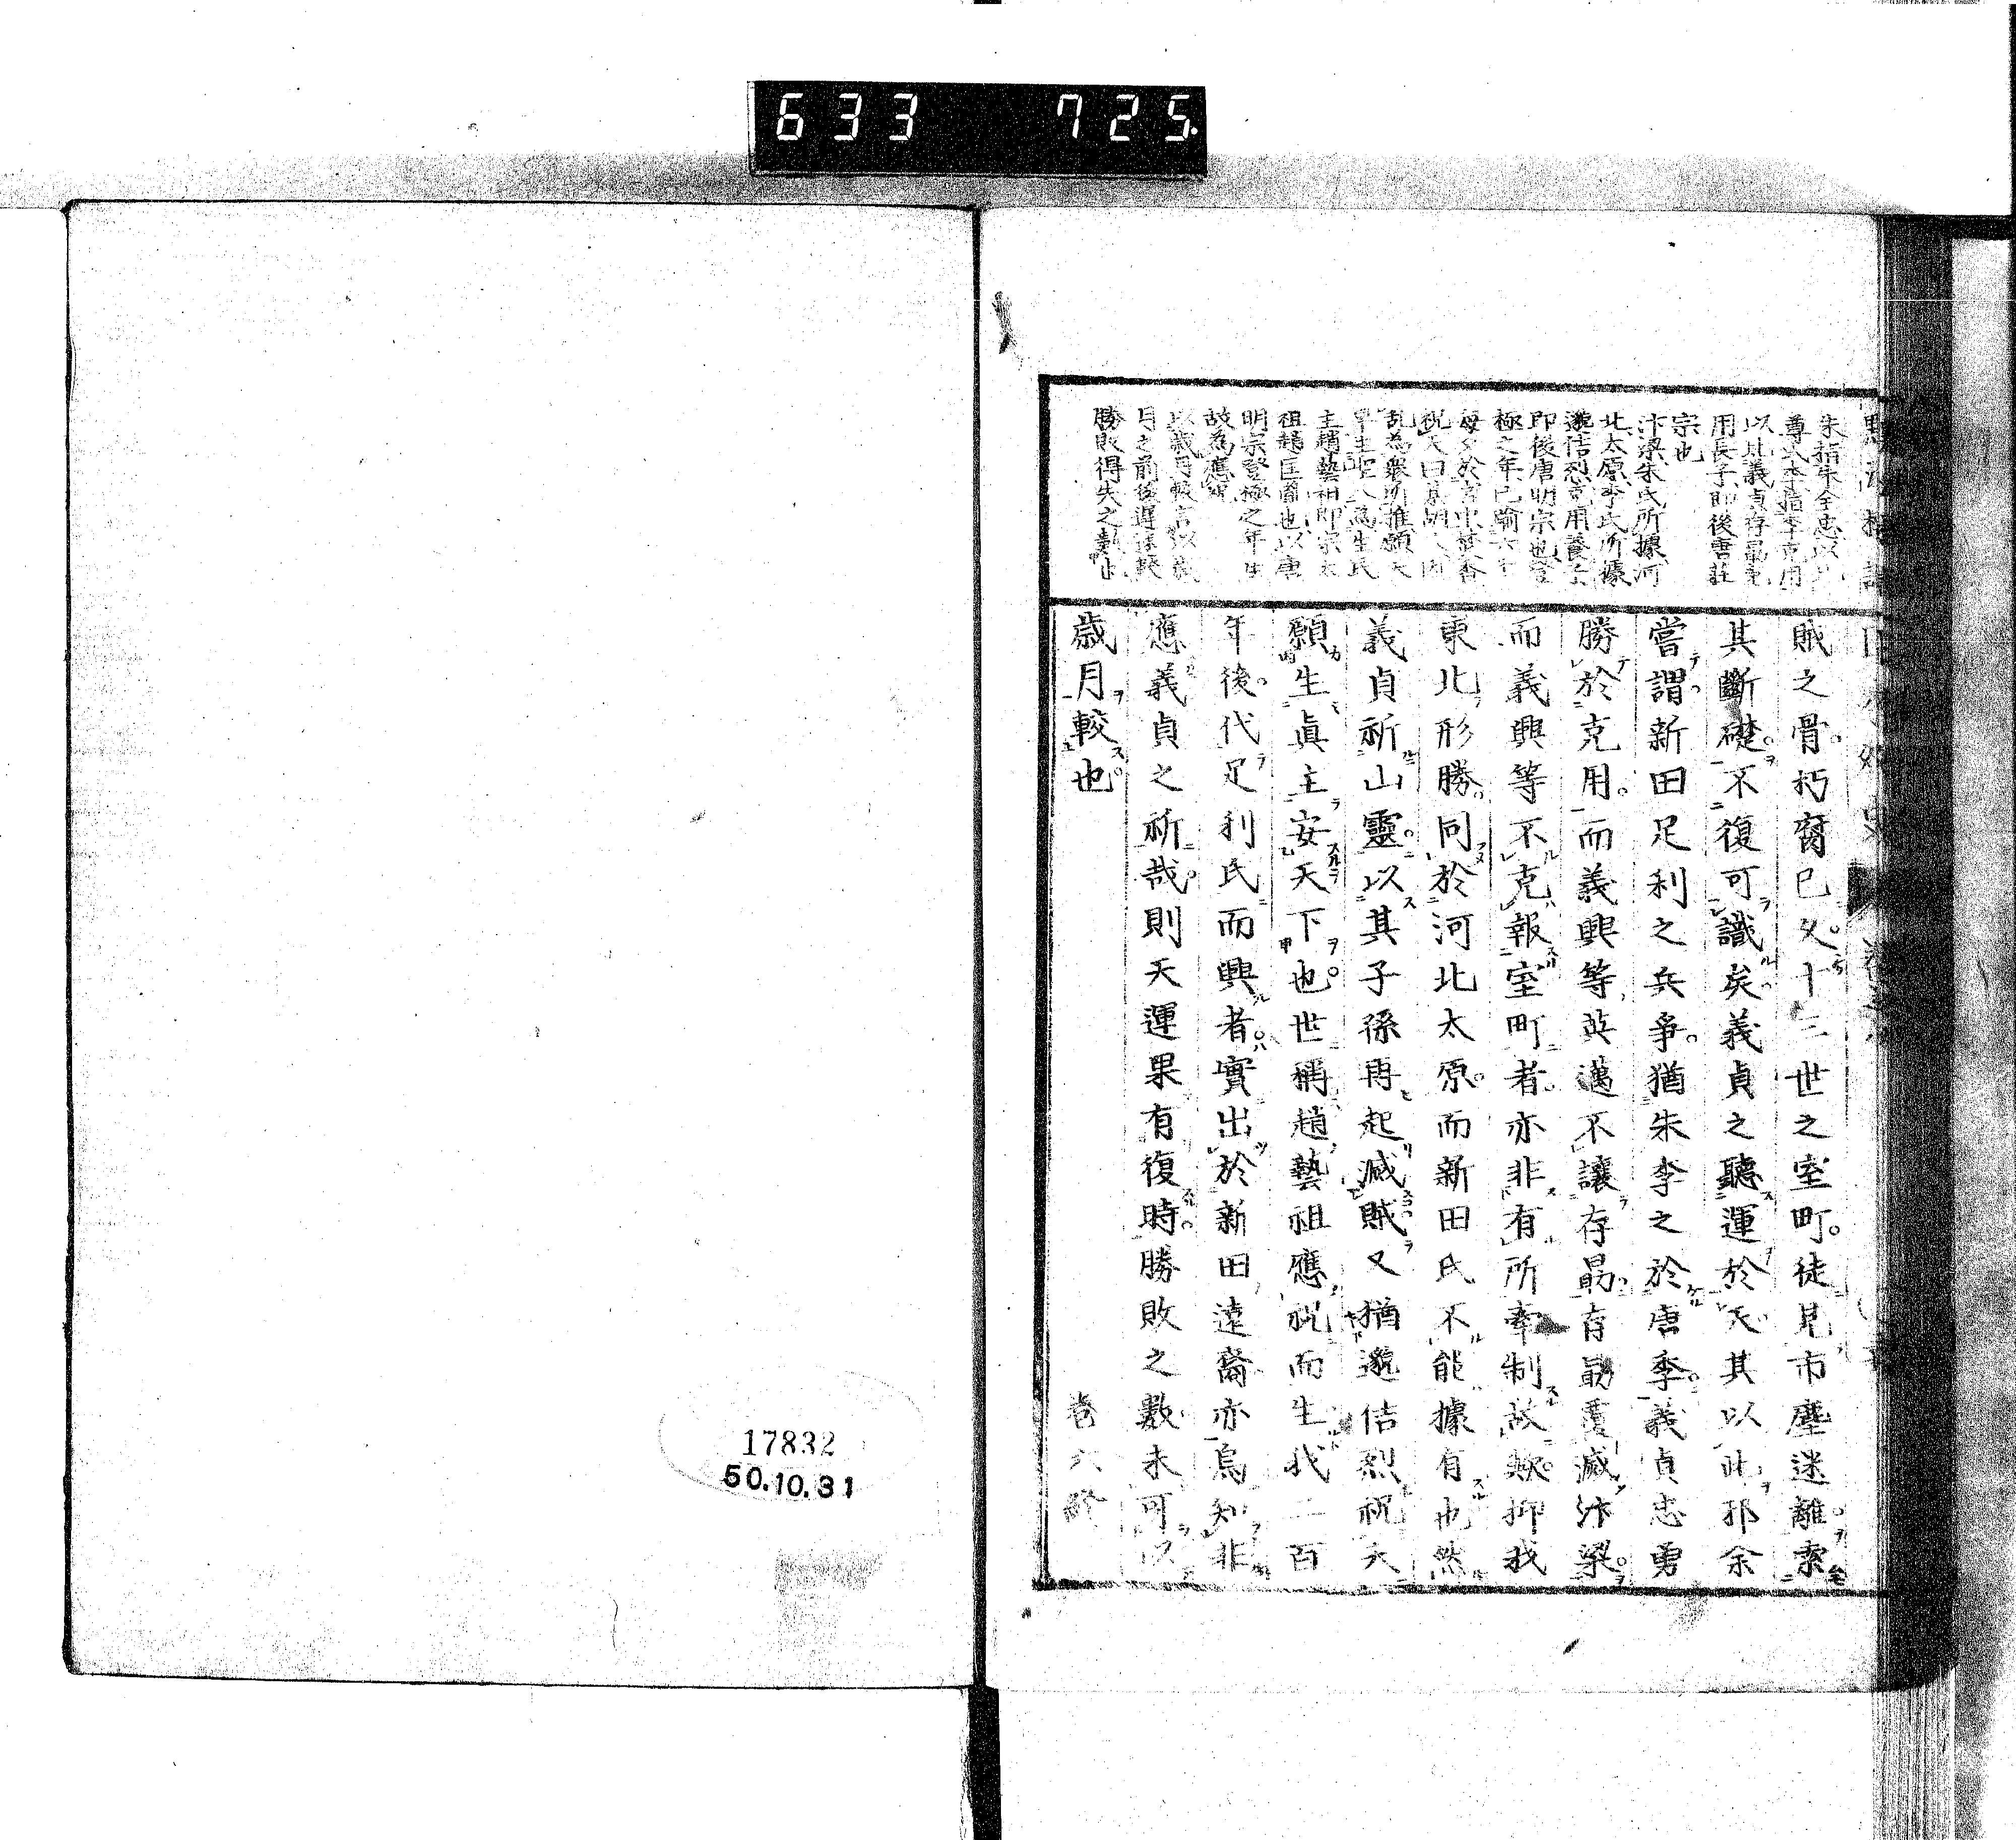 633 725
朱指朱全忠以
尊李指李克用
以此義貞存勗克
用長子即後唐莊
宗也
汴梁朱氏所據河
北太原李氏所據
邈佶烈克用養子
即後唐明宗也登
極之年已踰六十
每夕於宮中焚香
祝天曰某胡人因
乱為衆所推願天
早生聖人為生民
主趙藝祖即宋太
祖趙匡胤也以唐
明宗登極之年生
故為應祝
以歳月較言以歳
月之前後遅速較
勝敗得失之數也
賊之骨朽腐已久十三世之室町徒見市塵迷離索
其斷礎不復可識矣義貞之聽運於天其以此邪余
嘗謂新田足利之兵爭猶朱李之於唐季義貞忠勇
勝於克用而義興等英邁不讓存勗存勗覆滅汴梁
而義興等不克報室町者亦非有所牽制故歟抑我
東北形勝同於河北太原而新田氏不能據有也然
義貞祈山靈以其子孫再起滅賊又猶邈佶烈祝天
願生眞主安天下也世稱趙藝祖應祝而生我二百
年後代足利氏而興者實出於新田遠裔亦烏知非
應義貞之祈哉則天運果有復時勝敗之數未可以
歳月較也
卷六終
17832
50.10.31